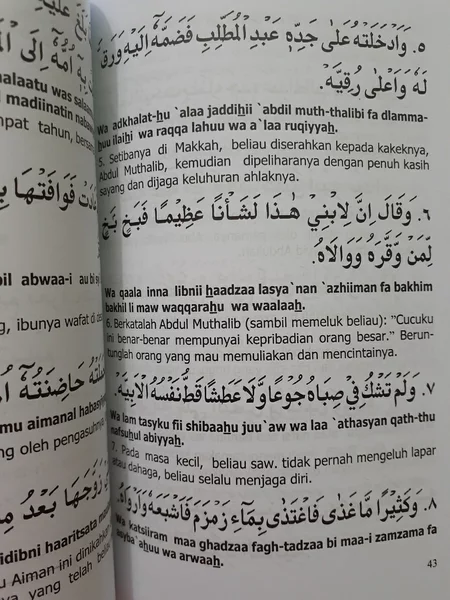 ٥. وَأَدْخَلَتْهُ عَلَى جَدِّهِ عَبْدِ الْمُطَّلِبِ فَضَمَّهُ إِلَيْهِ وَرَقَّ
لَهُ وَأَعْلَى رُقِيَّهُ.
Wa adkhalat-hu `alaa jaddihii `abdil muth-thalibi fa dlamma-
huu ilaihi wa raqqa lahuu wa a`laa ruqiyyah.
5. Setibanya di Makkah, beliau diserahkan kepada kakeknya,
Abdul Muthalib, kemudian dipeliharanya dengan penuh kasih
sayang dan dijaga keluhuran ahlaknya.
٦. وَقَالَ اِنَّ لِابْنِيْ هٰذَا لَشَأْنًا عَظِيْمًا فَبَخٍ بَخٍ
لِمَنْ وَقَّرَهُ وَوَالَاهُ.
Wa qaala inna libnii haadzaa lasya`nan `azhiiman fa bakhim
bakhil li maw waqqarahu wa waalaah.
6. Berkatalah Abdul Muthalib (sambil memeluk beliau): "Cucuku
ini benar-benar mempunyai kepribadian orang besar." Berun-
tunglah orang yang mau memuliakan dan mencintainya.
٧. وَلَمْ تَشْكُ فِيْ صِبَاهُ جُوْعًا وَّلَا عَطَشًا قَطُّ نَفْسُهُ الْأَبِيَّةُ.
Wa lam tasyku fii shibaahu juu`aw wa laa `athasyan qath-thu
nafsuhul abiyyah.
7. Pada masa kecil, beliau saw. tidak pernah mengeluh lapar
atau dahaga, beliau selalu menjaga diri.
٨. وَكَثِيْرًا مَّا غَذٰى فَاغْتَذٰى بِمَاءِ زَمْزَمَ فَأَشْبَعَهُ وَأَرْوَاهُ.
Wa katsiiram maa ghadzaa fagh-tadzaa bi maa-i zamzama fa
asyba`ahuu wa arwaah.
43